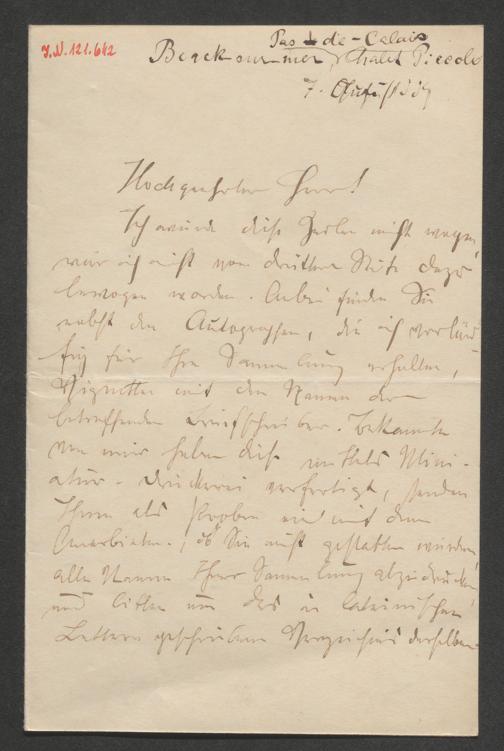 J.N. 121.642
Pas-de-Calais
Berck sur mer, Chalet Piccolo
7. August 89
Hochgeehrter Herr!
Ich würde diese Zeilen nicht wagen,
wäre ich nicht von dritter Seite dazu
bewogen worden. Anbei finden Sie
nebst den Autographen, die ich vorläu-
fig für Ihre Sammlung erhalten,
Vignetten mit den Namen der
betreffenden Briefschreiber. Bekannte
von mir haben diese mittels Mini-
atur-Druckerei verfertigt, senden
Ihnen als Proben ein mit dem
Anerbieten, ob Sie nicht gestatten würden,
alle Namen Ihrer Sammlung abzudrucken,
und bitten um das in lateinischen
Lettern geschriebene Verzeichnis derselben.